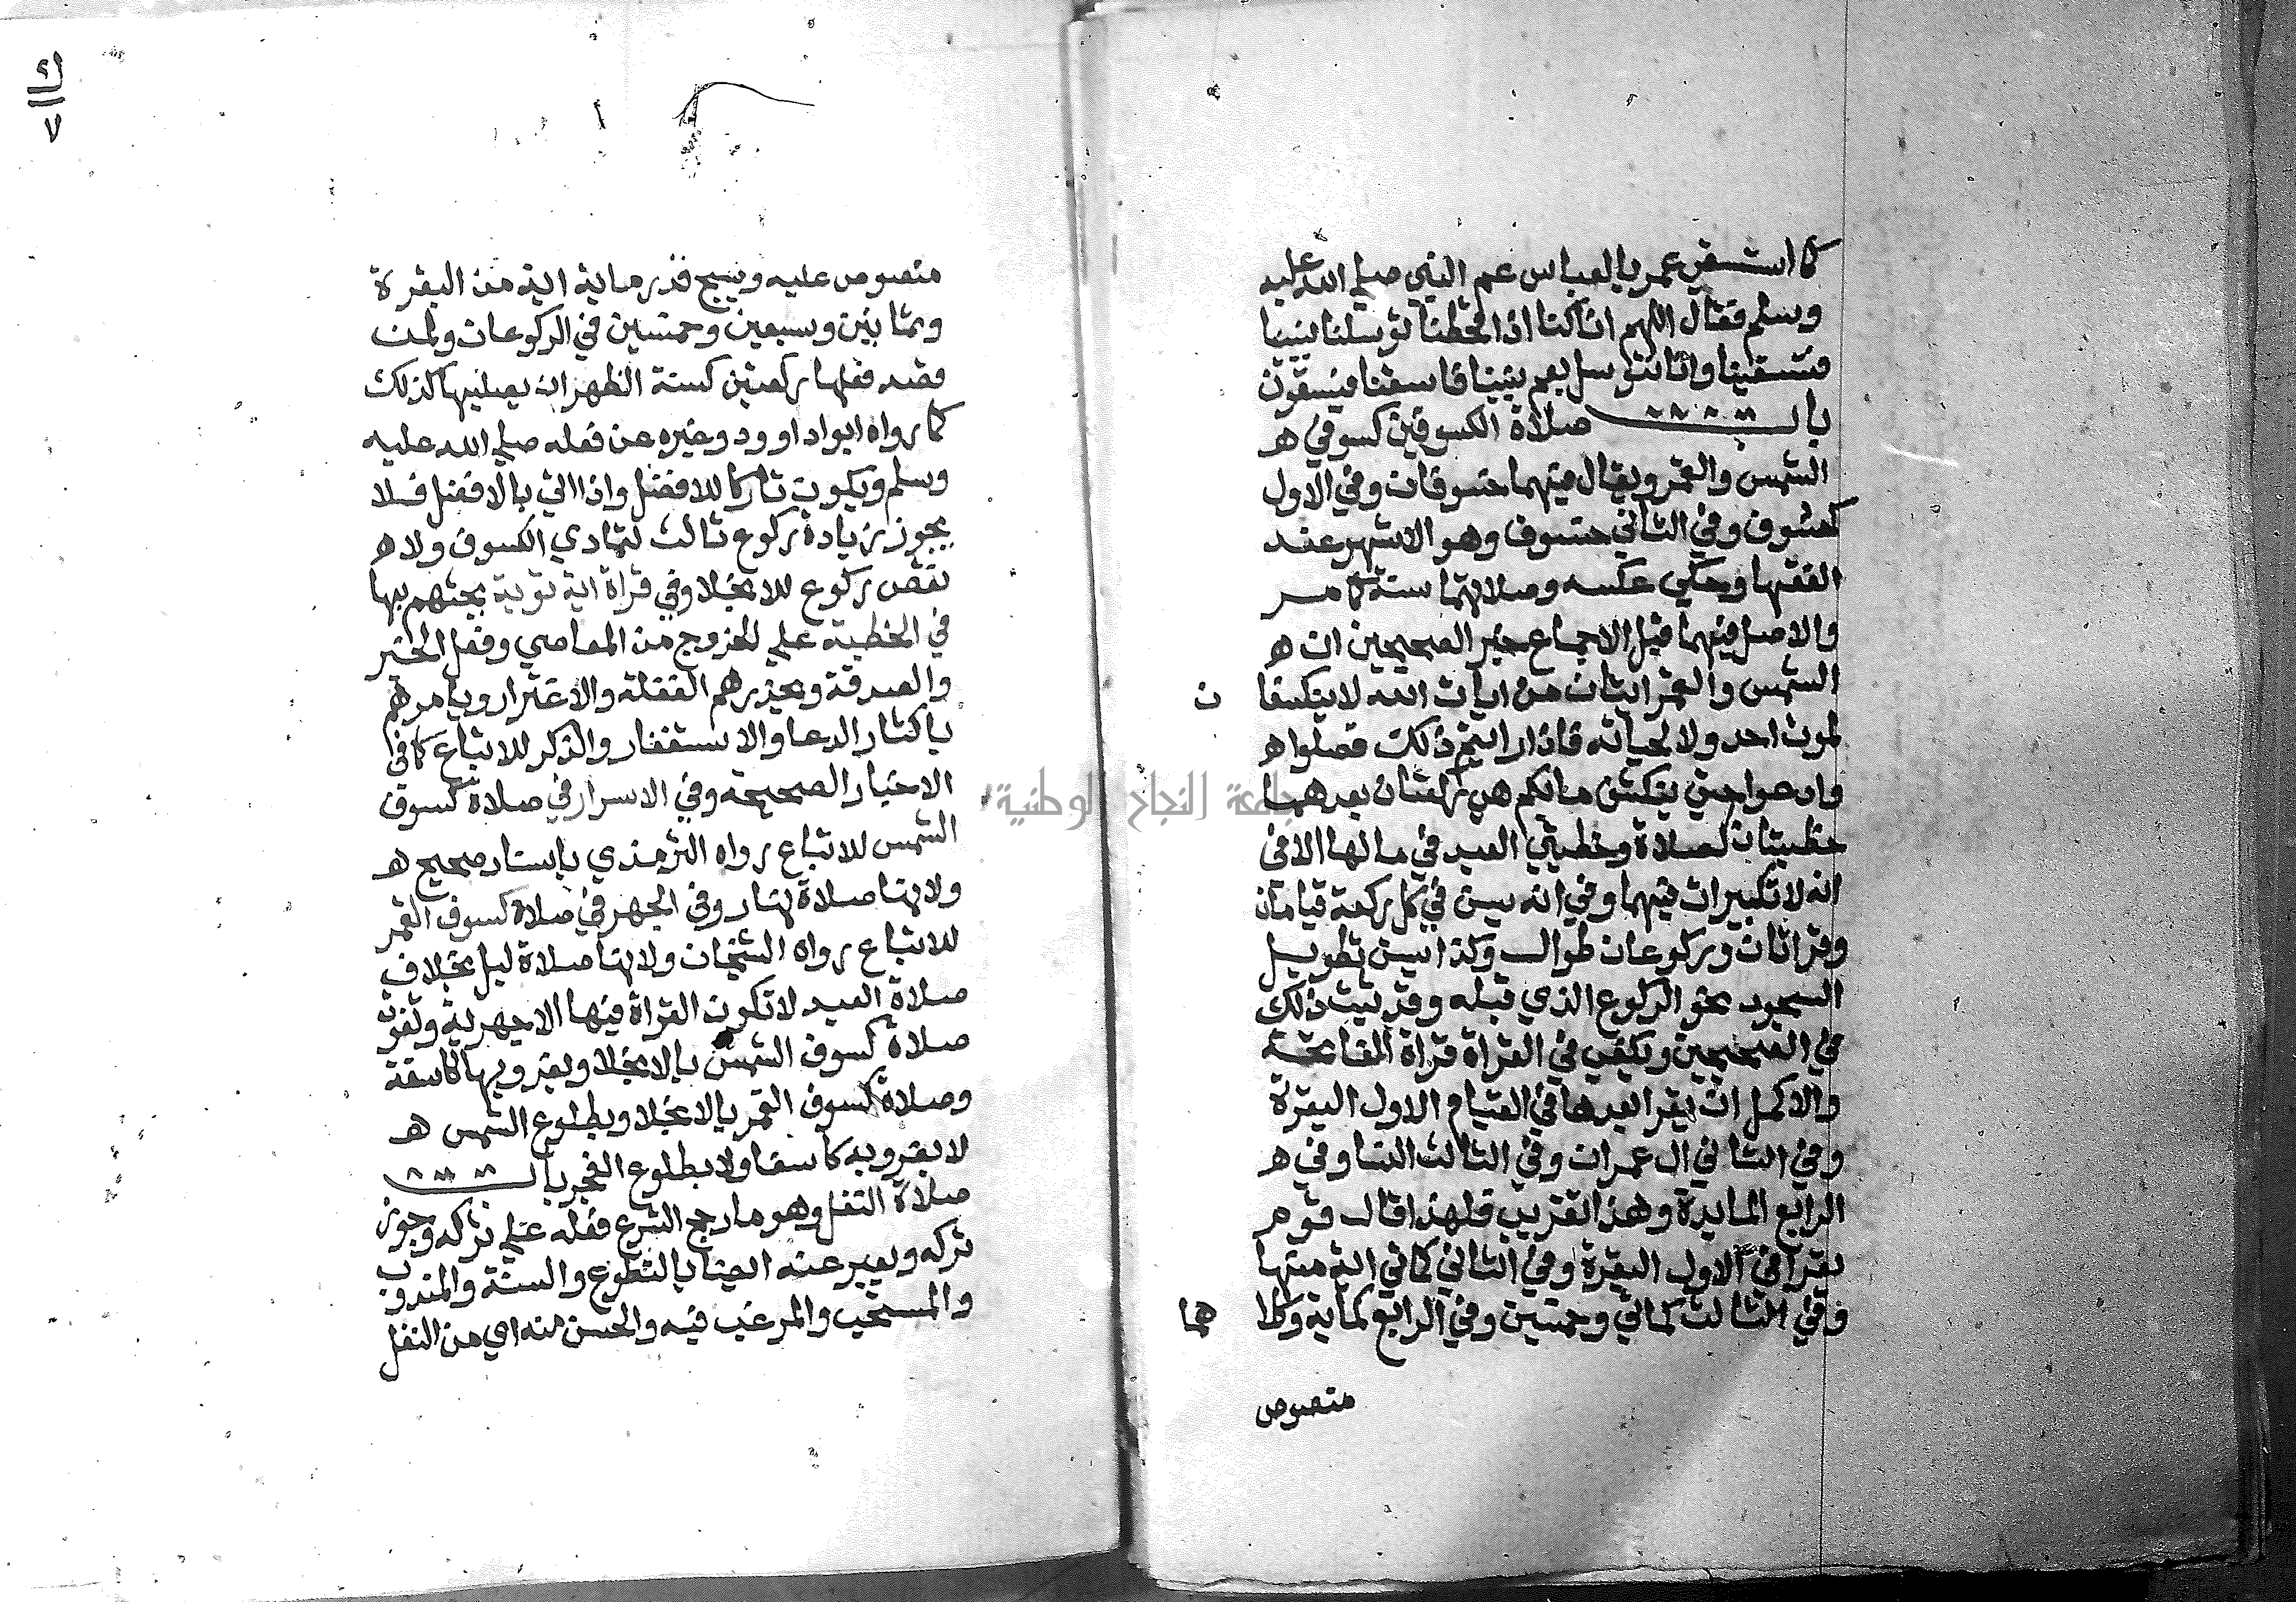 كما استسقى عمر بالعباس عم النبي صلي الله عليه
وسلم فقال اللهم انا كنا اذا قحطنا توسلنا بنبينا
فتسقينا وانا نتوسل بعم نبينا فاسقنا فيسقون
باب صلاة الكسوفين كسوفي ه
الشمس والقمر ويقال فيهما خسوفان وفي الاول
كسوف وفي الثاني خسوف وهو الاشهر عند
الفقها وحكي عكسه وصلاتهما سنة كما مر
والاصل فيهما قبل الاجماع خبر الصحيحين ان ه
الشمس والقمر ايتان من ايات الله لا ينكسفا
ن
لموت احد ولا لحياته فاذا رايتم ذلك فصلوا ه
وادعوا حتي ينكشف ما بكم هي ركعتان بعدهما
خطبتان لصلاة وخطبتي العيد في ما لها الا في
انه لا تكبيرات فيهما وفي انه يسن في كل ركعة قيامان
وقراتان وركوعان طوال وكذا يسن تطويل
السجود نحو الركوع الذي قبله وقد ثبت ذلك
في الصحيحين ويكفي في القراة قراة الفاتحة
والاكمل ان يقرا بعدها في القيام الاول البقرة
وفي الثاني ال عمران وفي الثالث النسا وفي ه
الرابع المايدة وهذا تقريب فلهذا قال قوم
يقرا في الاول البقرة وفي الثاني كماتي اية منها
وفي الثالث كماتي وخمسين وفي الرابع كماية وكلا
هما
منصوص
جامعة النجاح الوطنية
٧
منصوص عليه ويسبح قدر ماية اية من البقرة
وثمانين وسبعين وخمسين في الركوعات ولمن
قصد فعلها ركعتين كسنة الظهر ان يصليها كذلك
كما رواه ابو داوود وغيره عن فعله صلي الله عليه
وسلم ويكون تاركا للافضل واذا اتي بالافضل فلا
يجوز زيادة ركوع ثالث لتمادي الكسوف ولا ه
نقص ركوع للانجلا وفي قراة اية توبة يحثهم بها
في الخطبة علي الخروج من المعاصي وفعل الخير
والصدقة ويحذرهم الغفلة والاغترار ويامرهم
باكثار الدعا والاستغفار والذكر للاتباع كما في
الاخبار الصحيحة وفي الاسرار في صلاة كسوف
الشمس للاتباع رواه الترمذي باسناد صحيح ه
ولانها صلاة نهار وفي الجهر في صلاة كسوف القمر
للاتباع رواه الشيخان ولانها صلاة ليل بخلاف
صلاة العيد لا تكون القراة فيها الا جهرية وتفوت
صلاة كسوف الشمس بالانجلا وبغروبها كاسفة
وصلاة كسوف القمر بالانجلا وبطلوع الشمس ه
لا بغروبه كاسفا ولا بطلوع الفجر باب
صلاة النفل وهو ما رجح الشرع فعله علي تركه وجوز
تركه ويعبر عنه ايضا بالتطوع والسنة والمندوب
والمستحب والمرغب فيه والحسن منه اي من النفل